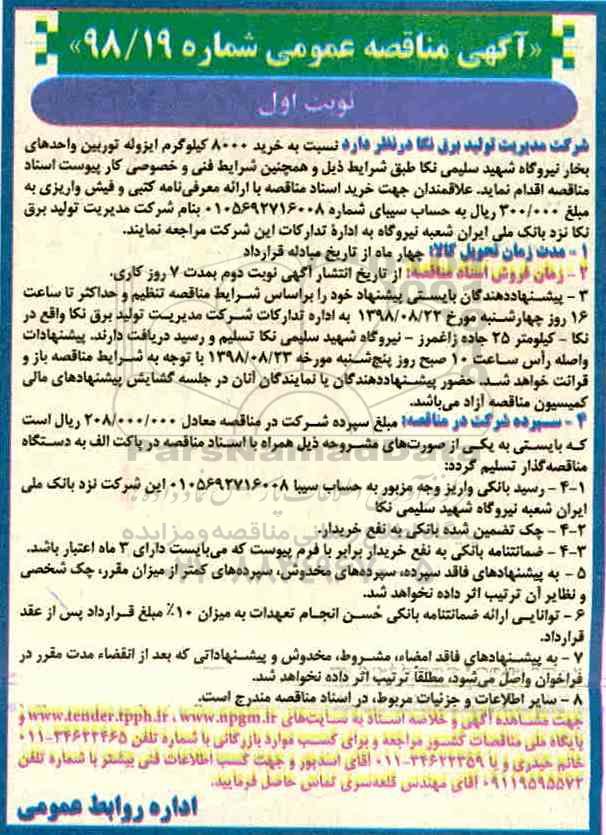 «آگهی مناقصه عمومی شماره ۹۸/۱۹»
نوبت اول
شرکت مدیریت تولید برق نکا درنظر دارد نسبت به خرید ۸۰۰۰ کیلوگرم ایزوله توربین واحدهای
بخار نیروگاه شهید سلیمی نکا طبق شرایط ذیل و همچنین شرایط فنی و خصوصی کار پیوست اسناد
مناقصه اقدام نماید. علاقمندان جهت خرید اسناد مناقصه با ارائه معرفی‌نامه کتبی و فیش واریزی به
مبلغ ۳۰۰/۰۰۰ ریال به حساب سیبای شماره ۰۱۰۵۶۹۲۷۱۶۰۰۸ بنام شرکت مدیریت تولید برق
نکا نزد بانک ملی ایران شعبه نیروگاه به ادارهٔ تدارکات این شرکت مراجعه نمایند.
۱ - مدت زمان تحویل کالا: چهار ماه از تاریخ مبادله قرارداد
۲ - زمان فروش اسناد مناقصه: از تاریخ انتشار آگهی نوبت دوم بمدت ۷ روز کاری.
۳ - پیشنهاددهندگان بایستی پیشنهاد خود را براساس شرایط مناقصه تنظیم و حداکثر تا ساعت
۱۶ روز چهارشنبه مورخ ۱۳۹۸/۰۸/۲۲ به اداره تدارکات شرکت مدیریت تولید برق نکا واقع در
نکا - کیلومتر ۲۵ جاده زاغمرز - نیروگاه شهید سلیمی نکا تسلیم و رسید دریافت دارند. پیشنهادات
واصله رأس ساعت ۱۰ صبح روز پنج‌شنبه مورخه ۱۳۹۸/۰۸/۲۳ با توجه به شرایط مناقصه باز و
قرائت خواهد شد. حضور پیشنهاددهندگان یا نمایندگان آنان در جلسه گشایش پیشنهادهای مالی
کمیسیون مناقصه آزاد می‌باشد.
۴ - سپرده شرکت در مناقصه: مبلغ سپرده شرکت در مناقصه معادل ۲۰۸/۰۰۰/۰۰۰ ریال است
که بایستی به یکی از صورت‌های مشروحه ذیل همراه با اسناد مناقصه در پاکت الف به دستگاه
مناقصه‌گذار تسلیم گردد:
۴-۱ - رسید بانکی واریز وجه مزبور به حساب سیبا ۰۱۰۵۶۹۲۷۱۶۰۰۸ این شرکت نزد بانک ملی
ایران شعبه نیروگاه شهید سلیمی نکا
۴-۲ - چک تضمین شده بانکی به نفع خریدار.
۴-۳ - ضمانتنامه بانکی به نفع خریدار برابر با فرم پیوست که می‌بایست دارای ۳ ماه اعتبار باشد.
۵ - به پیشنهادهای فاقد سپرده، سپرده‌های مخدوش، سپرده‌های کمتر از میزان مقرر، چک شخصی
و نظایر آن ترتیب اثر داده نخواهد شد.
۶ - توانایی ارائه ضمانتنامه بانکی حُسن انجام تعهدات به میزان ۱۰٪ مبلغ قرارداد پس از عقد
قرارداد.
۷ - به پیشنهادهای فاقد امضاء، مشروط، مخدوش و پیشنهاداتی که بعد از انقضاء مدت مقرر در
فراخوان واصل می‌شود، مطلقاً ترتیب اثر داده نخواهد شد.
۸ - سایر اطلاعات و جزئیات مربوط، در اسناد مناقصه مندرج است.
جهت مشاهده آگهی و خلاصه اسناد به سایت‌های www.tender.tpph.ir ، www.npgm.ir و
پایگاه ملی مناقصات کشور مراجعه و برای کسب موارد بازرگانی با شماره تلفن ۳۴۶۲۲۴۶۵-۰۱۱
خانم حیدری و یا ۳۴۶۲۲۳۵۹-۰۱۱ آقای اسدپور و جهت کسب اطلاعات فنی بیشتر با شماره تلفن
۰۹۱۱۹۵۹۵۵۷۲ آقای مهندس قلعه‌سری تماس حاصل فرمایید.
اداره روابط عمومی